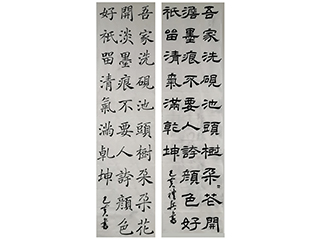 吾家洗硯池頭樹朶花開
澹墨痕不要人誇顏色好
祇留清氣滿乾坤
吾家洗硯池頭樹朵朵花
開淡墨痕不要人誇顏色
好祇留清氣滿乾坤